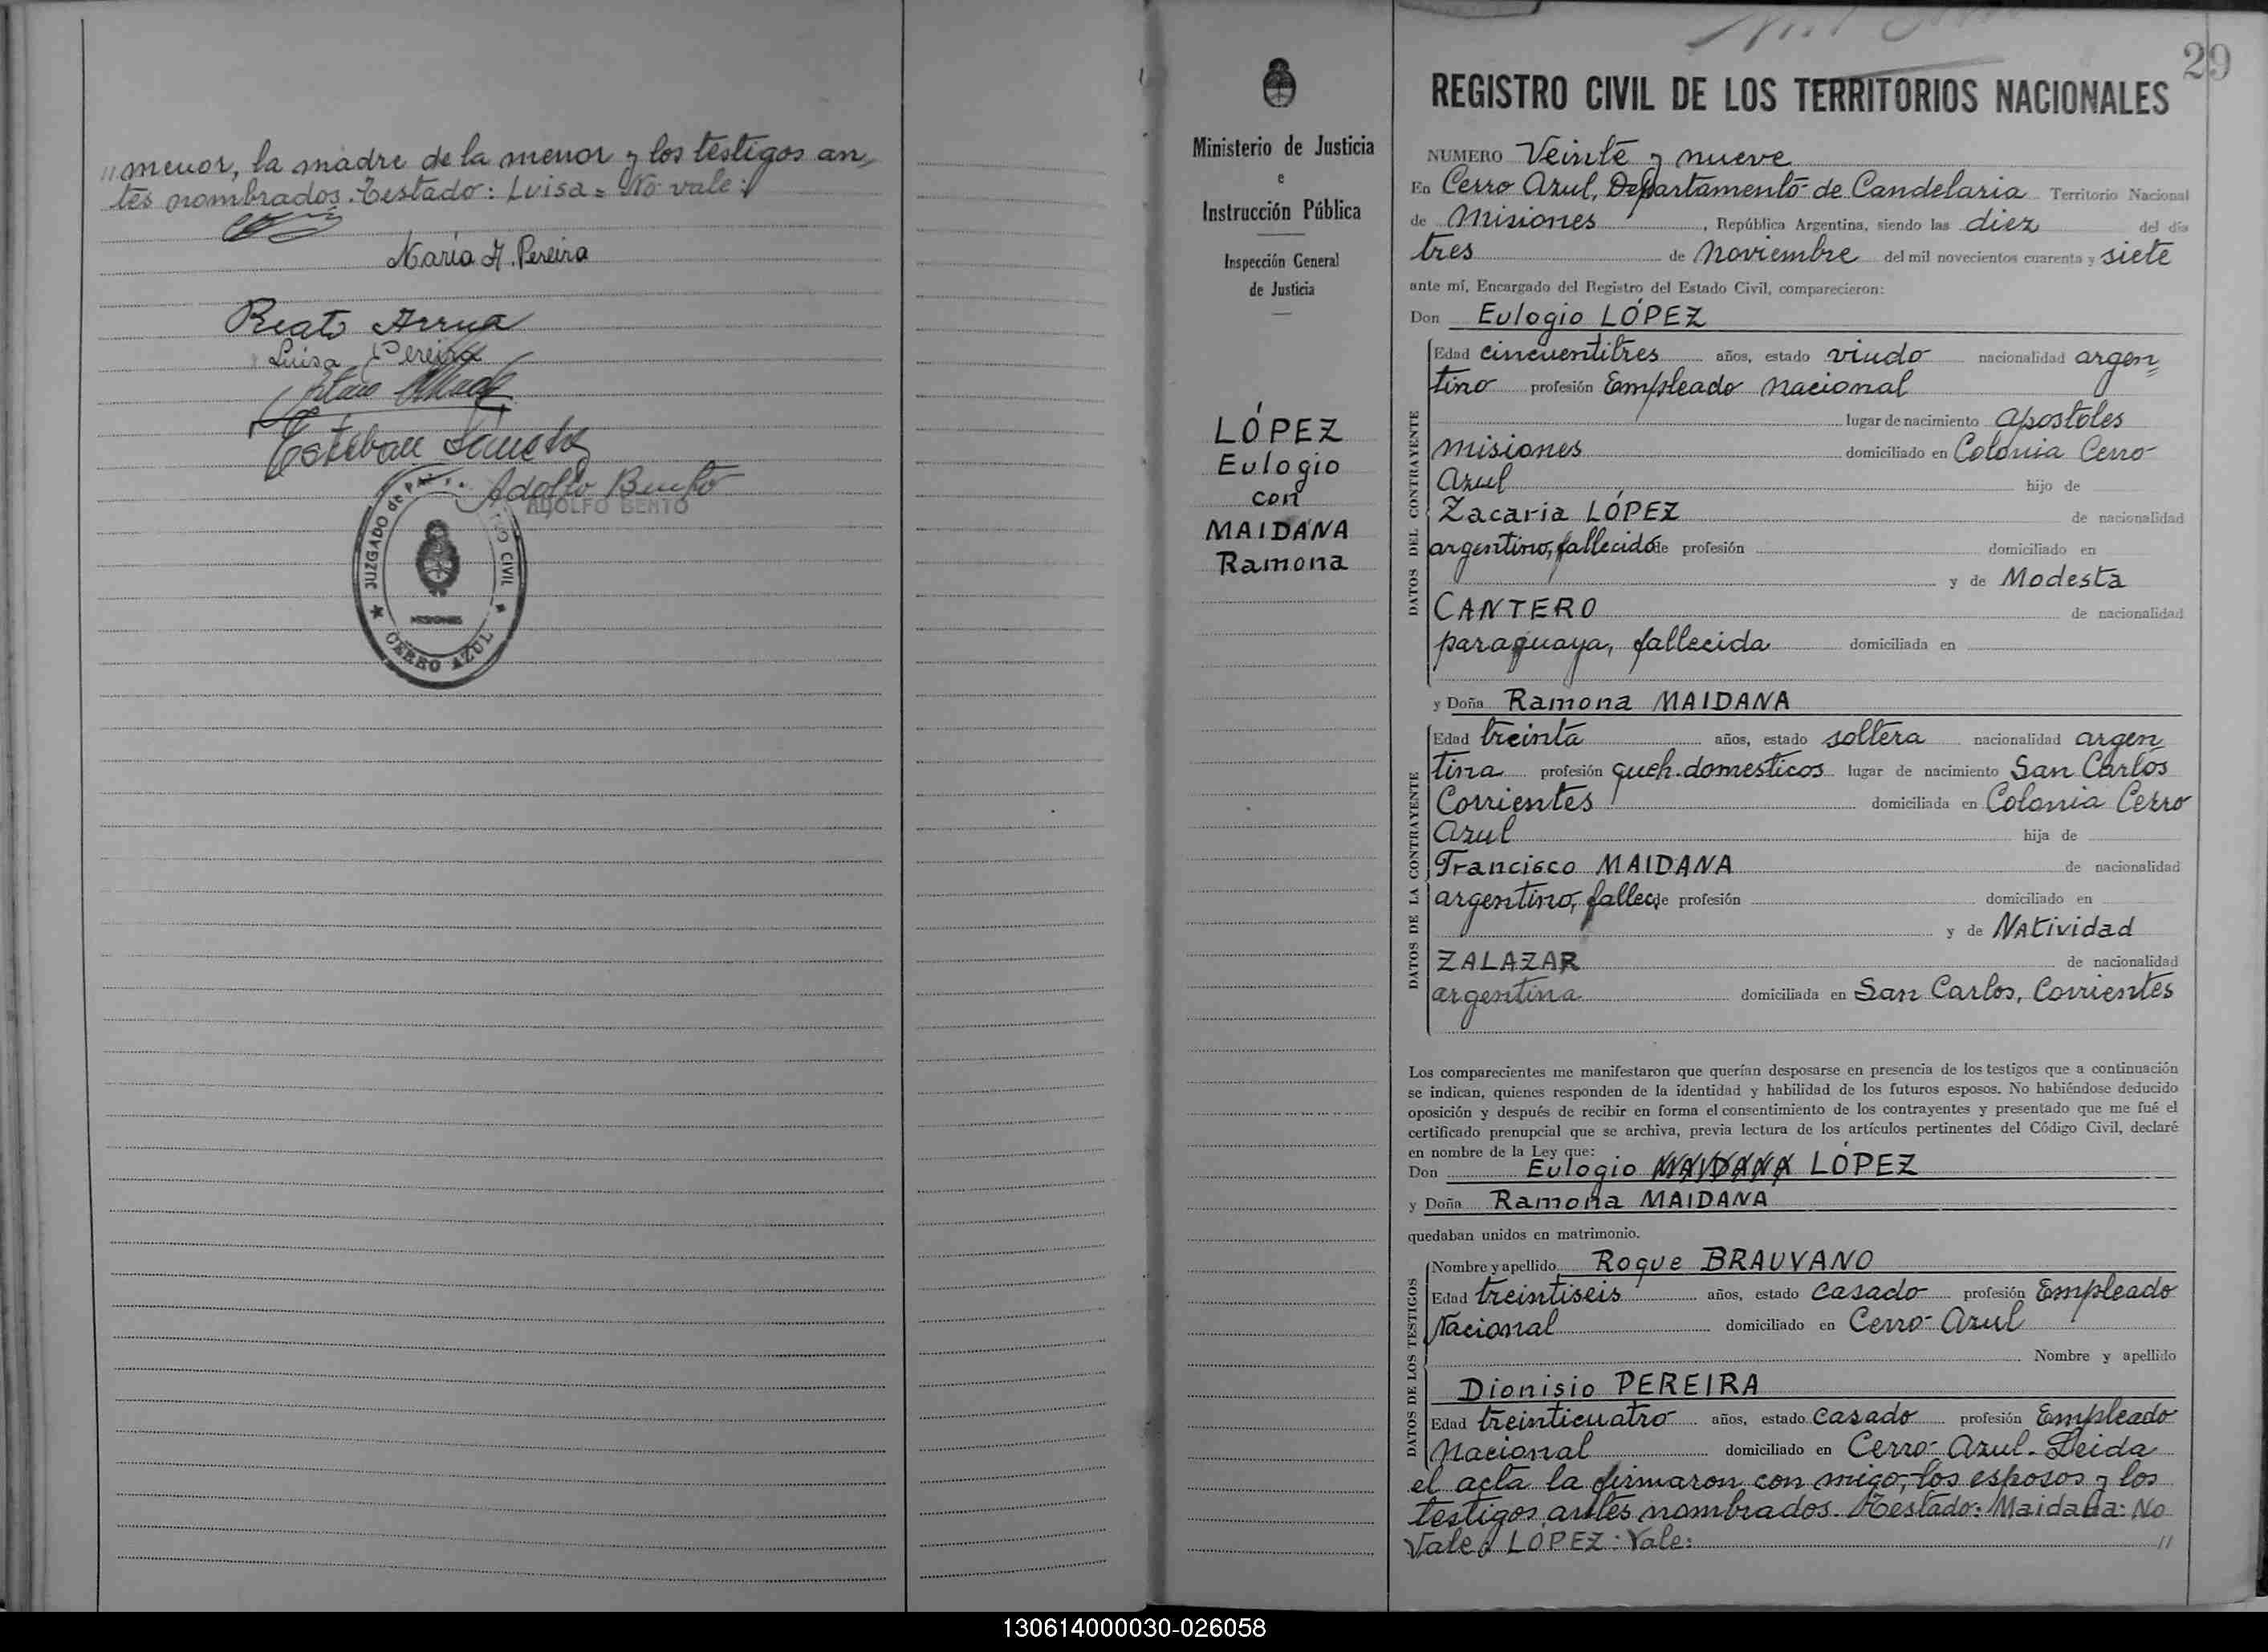 "menor, la madre de la menor y los testigos an,
tes nombrados. Testado: Luisa = No vale:
María A. Pereira
Beato Arrua
Luisa Pereira
Esteban
Adolfo Bento
ADOLFO BENTO
JUZGADO de PAZ
CIVIL
MISIONES
CERRO AZUL
Ministerio de Justicia
e
Instrucción Pública
Inspección General
de Justicia
LÓPEZ
Eulogio
con
MAIDANA
Ramona
29
REGISTRO CIVIL DE LOS TERRITORIOS NACIONALES
NUMERO Veinte y nueve
En Cerro Azul, Departamento de Candelaria Territorio Nacional
de Misiones, República Argentina, siendo las diez del día
tres de Noviembre del mil novecientos cuarenta y siete
ante mí, Encargado del Registro del Estado Civil, comparecieron:
Don Eulogio LÓPEZ
DATOS DEL CONTRAYENTE
Edad cincuentitres años, estado viudo nacionalidad argen=
tino profesión Empleado Nacional
lugar de nacimiento Apostoles
Misiones domiciliado en Colonia Cerro
Azul hijo de
Zacaria LÓPEZ de nacionalidad
argentino, fallecido de profesión domiciliado en
y de Modesta
CANTERO de nacionalidad
paraguaya, fallecida domiciliada en
y Doña Ramona MAIDANA
DATOS DE LA CONTRAYENTE
Edad treinta años, estado soltera nacionalidad argen
tina profesión queh. domesticos lugar de nacimiento San Carlos
Corrientes domiciliada en Colonia Cerro
Azul hija de
Francisco MAIDANA de nacionalidad
argentino, fallec. de profesión domiciliado en
y de NAtividad
ZALAZAR de nacionalidad
argentina domiciliada en San Carlos, Corrientes
Los comparecientes me manifestaron que querían desposarse en presencia de los testigos que a continuación
se indican, quienes responden de la identidad y habilidad de los futuros esposos. No habiéndose deducido
oposición y después de recibir en forma el consentimiento de los contrayentes y presentado que me fué el
certificado prenupcial que se archiva, previa lectura de los artículos pertinentes del Código Civil, declaré
en nombre de la Ley que:
Don Eulogio MAIDANA LÓPEZ
y Doña Ramona MAIDANA
quedaban unidos en matrimonio.
DATOS DE LOS TESTIGOS
Nombre y apellido Roque BRAUVANO
Edad treintiseis años, estado casado profesión Empleado
Nacional domiciliado en Cerro-Azul
Nombre y apellido
Dionisio PEREIRA
Edad treinticuatro años, estado casado profesión Empleado
Nacional domiciliado en Cerro-Azul. Leida
el acta la firmaron con migo, los esposos y los
testigos antes nombrados. Testado: Maidana: No
Vale: LÓPEZ: Vale: "
130614000030-026058